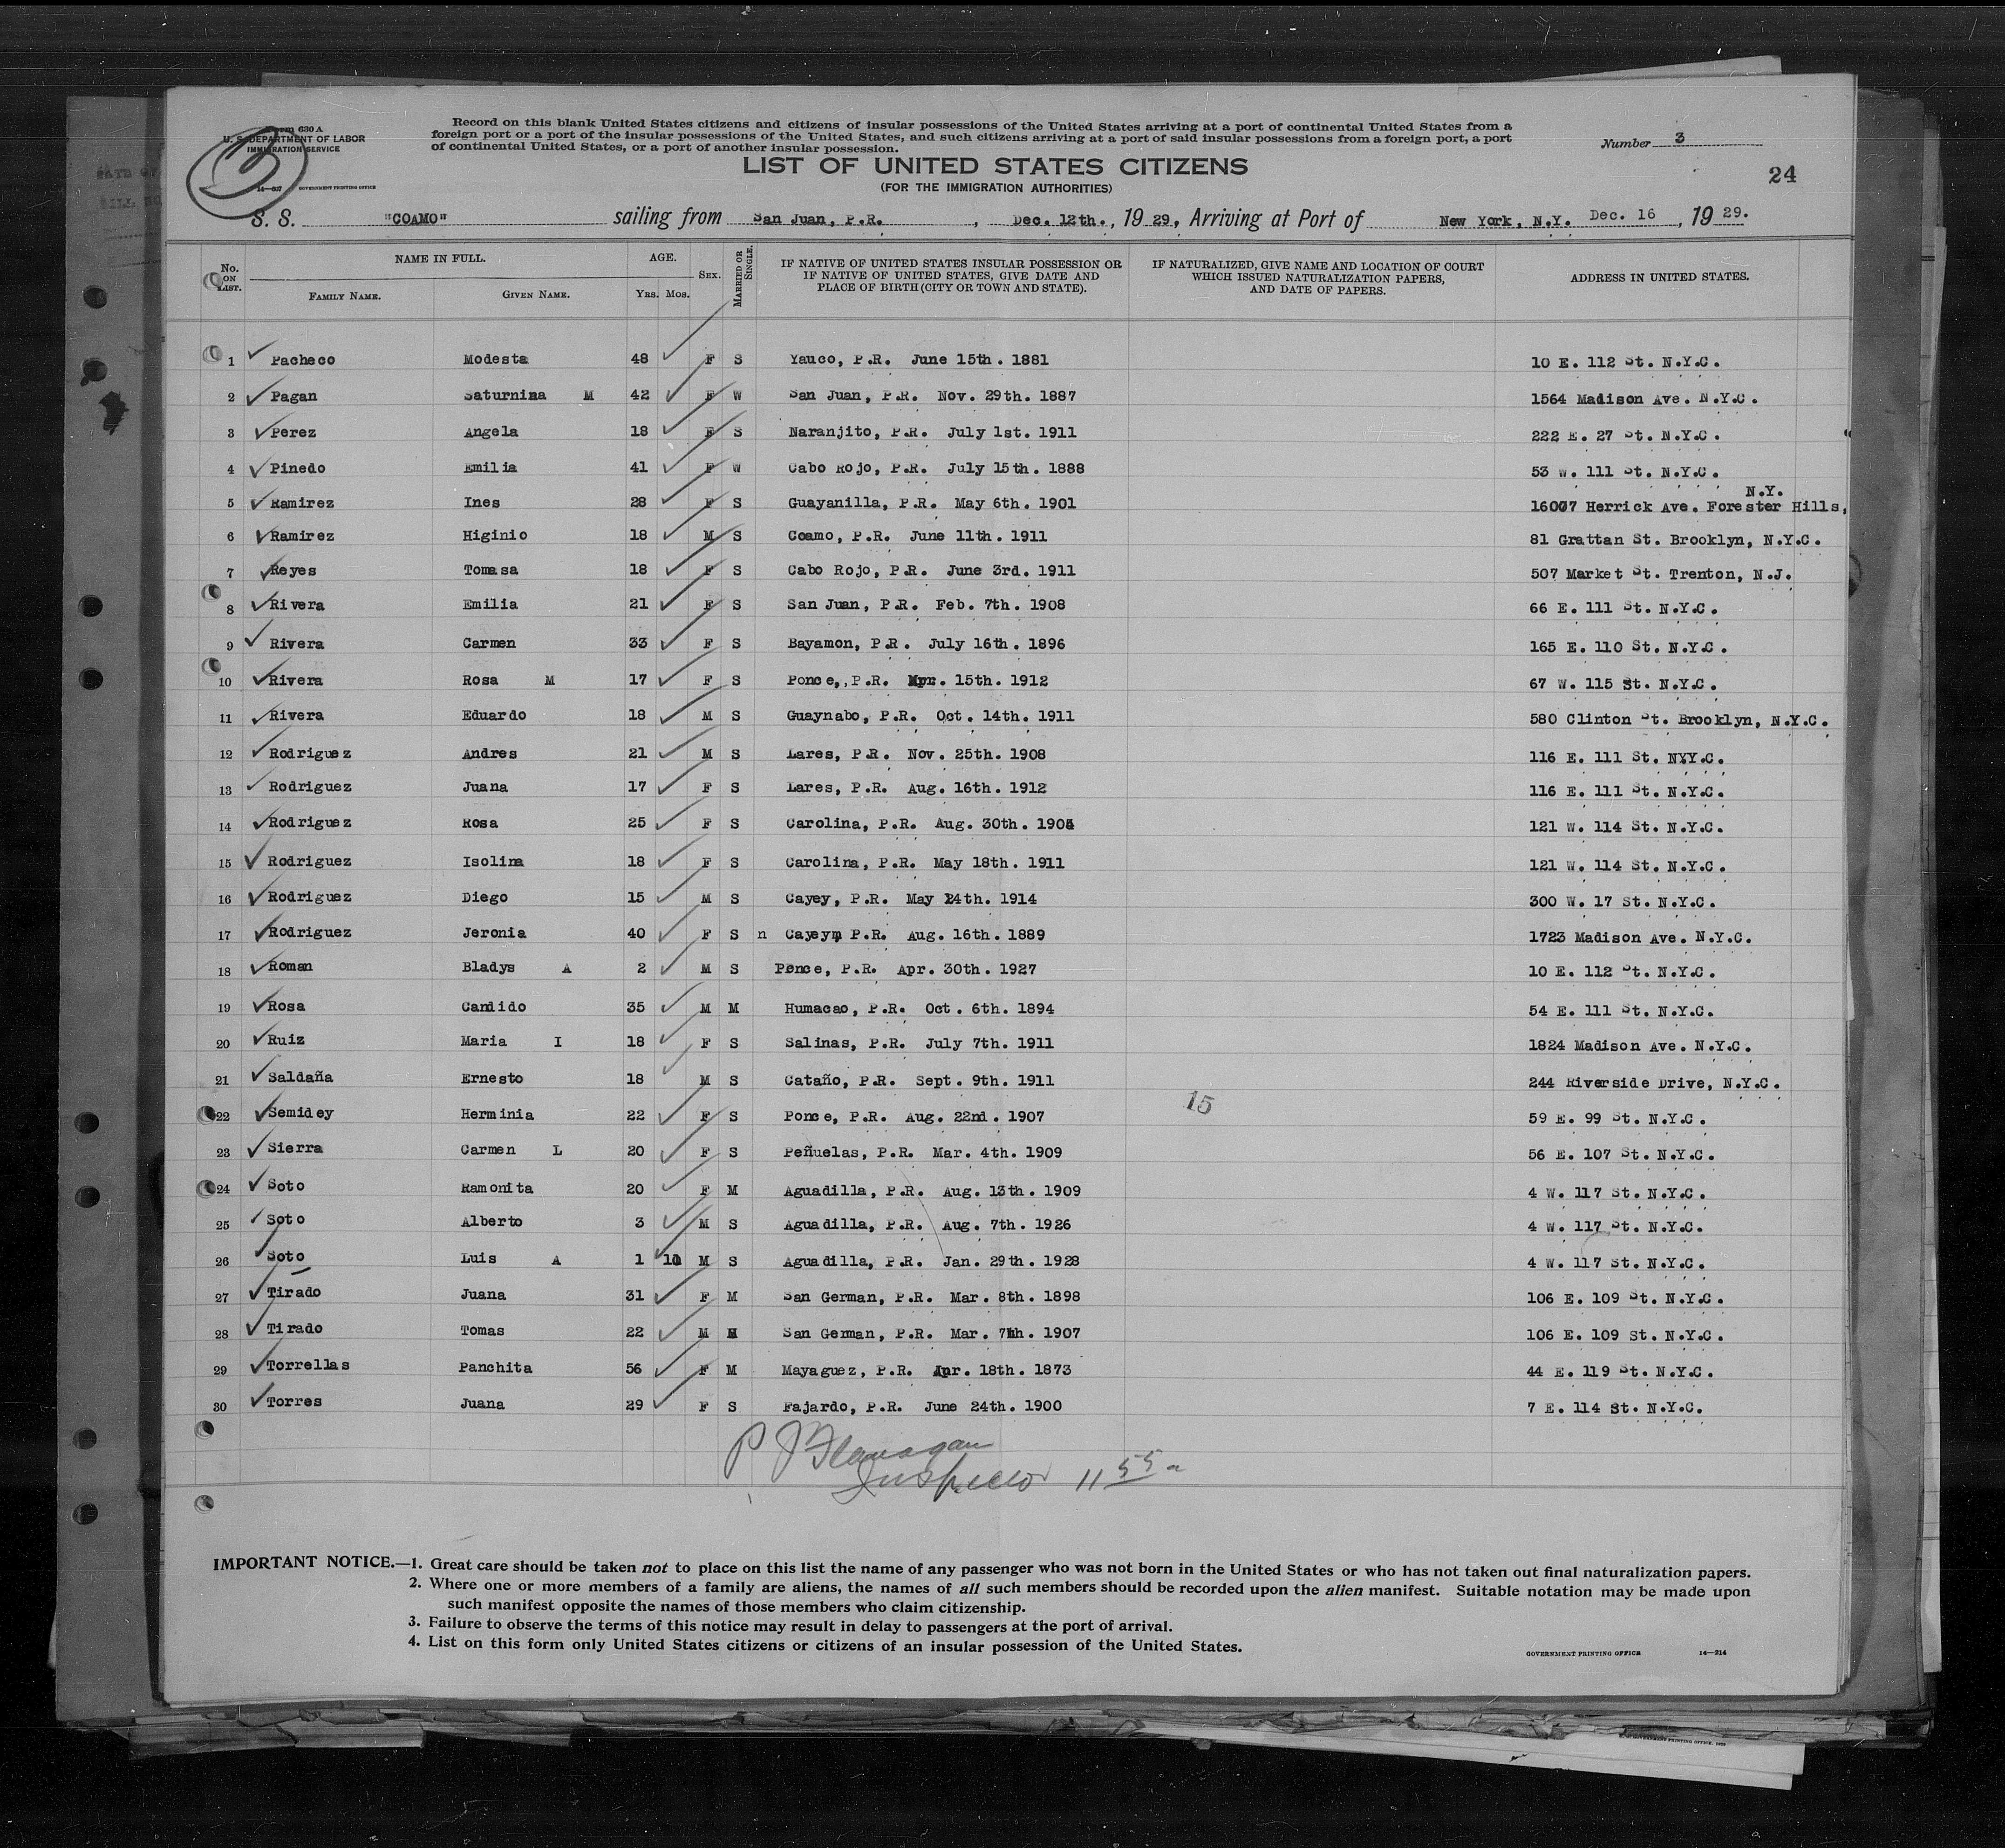 Form 630 A
U. S. DEPARTMENT OF LABOR
IMMIGRATION SERVICE
14—607 GOVERNMENT PRINTING OFFICE
3
Record on this blank United States citizens and citizens of insular possessions of the United States arriving at a port of continental United States from a
foreign port or a port of the insular possessions of the United States, and such citizens arriving at a port of said insular possessions from a foreign port, a port
of continental United States, or a port of another insular possession.
Number 3
24
LIST OF UNITED STATES CITIZENS
(FOR THE IMMIGRATION AUTHORITIES)
S. S. "COAMO" sailing from San Juan, P.R. , Dec. 12th., 19 29, Arriving at Port of New York, N.Y. Dec. 16 , 19 29.
No. ON LIST. NAME IN FULL. FAMILY NAME. GIVEN NAME. AGE. YRS. MOS. SEX. MARRIED OR SINGLE. IF NATIVE OF UNITED STATES INSULAR POSSESSION OR IF NATIVE OF UNITED STATES, GIVE DATE AND PLACE OF BIRTH (CITY OR TOWN AND STATE). IF NATURALIZED, GIVE NAME AND LOCATION OF COURT WHICH ISSUED NATURALIZATION PAPERS, AND DATE OF PAPERS. ADDRESS IN UNITED STATES.
1 Pacheco Modesta 48 F S Yauco, P.R. June 15th. 1881 10 E. 112 St. N.Y.C.
2 Pagan Saturnina M 42 F W San Juan, P.R. Nov. 29th. 1887 1564 Madison Ave. N.Y.C.
3 Perez Angela 18 F S Naranjito, P.R. July 1st. 1911 222 E. 27 St. N.Y.C.
4 Pinedo Emilia 41 F W Cabo Rojo, P.R. July 15th. 1888 53 W. 111 St. N.Y.C.
5 Ramirez Ines 28 F S Guayanilla, P.R. May 6th. 1901 16007 Herrick Ave. Forester Hills, N.Y.
6 Ramirez Higinio 18 M S Coamo, P.R. June 11th. 1911 81 Grattan St. Brooklyn, N.Y.C.
7 Reyes Tomasa 18 F S Cabo Rojo, P.R. June 3rd. 1911 507 Market St. Trenton, N.J.
8 Rivera Emilia 21 F S San Juan, P.R. Feb. 7th. 1908 66 E. 111 St. N.Y.C.
9 Rivera Carmen 33 F S Bayamon, P.R. July 16th. 1896 165 E. 110 St. N.Y.C.
10 Rivera Rosa M 17 F S Ponce,,P.R. Apr. 15th. 1912 67 W. 115 St. N.Y.C.
11 Rivera Eduardo 18 M S Guaynabo, P.R. Oct. 14th. 1911 580 Clinton St. Brooklyn, N.Y.C.
12 Rodriguez Andres 21 M S Lares, P.R. Nov. 25th. 1908 116 E. 111 St. NYY.C.
13 Rodriguez Juana 17 F S Lares, P.R. Aug. 16th. 1912 116 E. 111 St. N.Y.C.
14 Rodriguez Rosa 25 F S Carolina, P.R. Aug. 30th. 1904 121 W. 114 St. N.Y.C.
15 Rodriguez Isolina 18 F S Carolina, P.R. May 18th. 1911 121 W. 114 St. N.Y.C.
16 Rodriguez Diego 15 M S Cayey, P.R. May 24th. 1914 300 W. 17 St. N.Y.C.
17 Rodriguez Jeronia 40 F S n Cayeym P.R. Aug. 16th. 1889 1723 Madison Ave. N.Y.C.
18 Roman Bladys A 2 M S Ponce, P.R. Apr. 30th. 1927 10 E. 112 St. N.Y.C.
19 Rosa Candido 35 M M Humacao, P.R. Oct. 6th. 1894 54 E. 111 St. N.Y.C.
20 Ruiz Maria I 18 F S Salinas, P.R. July 7th. 1911 1824 Madison Ave. N.Y.C.
21 Saldaña Ernesto 18 M S Cataño, P.R. Sept. 9th. 1911 244 Riverside Drive, N.Y.C.
22 Semidey Herminia 22 F S Ponce, P.R. Aug. 22nd. 1907 15 59 E. 99 St. N.Y.C.
23 Sierra Carmen L 20 F S Peñuelas, P.R. Mar. 4th. 1909 56 E. 107 St. N.Y.C.
24 Soto Ramonita 20 F M Aguadilla, P.R. Aug. 13th. 1909 4 W. 117 St. N.Y.C.
25 Soto Alberto 3 M S Aguadilla, P.R. Aug. 7th. 1926 4 W. 117 St. N.Y.C.
26 Soto Luis A 1 10 M S Aguadilla, P.R. Jan. 29th. 1928 4 W. 117 St. N.Y.C.
27 Tirado Juana 31 F M San German, P.R. Mar. 8th. 1898 106 E. 109 St. N.Y.C.
28 Tirado Tomas 22 M M San German, P.R. Mar. 7th. 1907 106 E. 109 St. N.Y.C.
29 Torrellas Panchita 56 F M Mayaguez, P.R. Apr. 18th. 1873 44 E. 119 St. N.Y.C.
30 Torres Juana 29 F S Fajardo, P.R. June 24th. 1900 7 E. 114 St. N.Y.C.
P J Flanagan
Inspector 11 55 a
IMPORTANT NOTICE.—1. Great care should be taken not to place on this list the name of any passenger who was not born in the United States or who has not taken out final naturalization papers.
2. Where one or more members of a family are aliens, the names of all such members should be recorded upon the alien manifest. Suitable notation may be made upon
such manifest opposite the names of those members who claim citizenship.
3. Failure to observe the terms of this notice may result in delay to passengers at the port of arrival.
4. List on this form only United States citizens or citizens of an insular possession of the United States.
GOVERNMENT PRINTING OFFICE 14—214